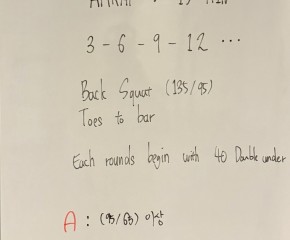 3 - 6 - 9 - 12 ...
Back Squat (135/95)
Toes to bar
Each rounds begin with 40 Double under
A : (95/65) 이상